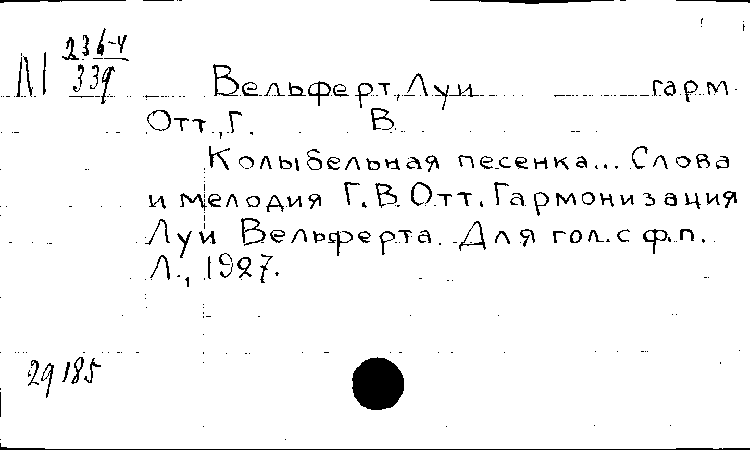 М 236-4
339
Вельферт, Луи гарм
Отт, Г. В
Колыбельная песенка... Слова
и мелодия Г. В. Отт. Гармонизация
Луи Вельферта. Для гол. с ф.п.
Л., 1927.
29185